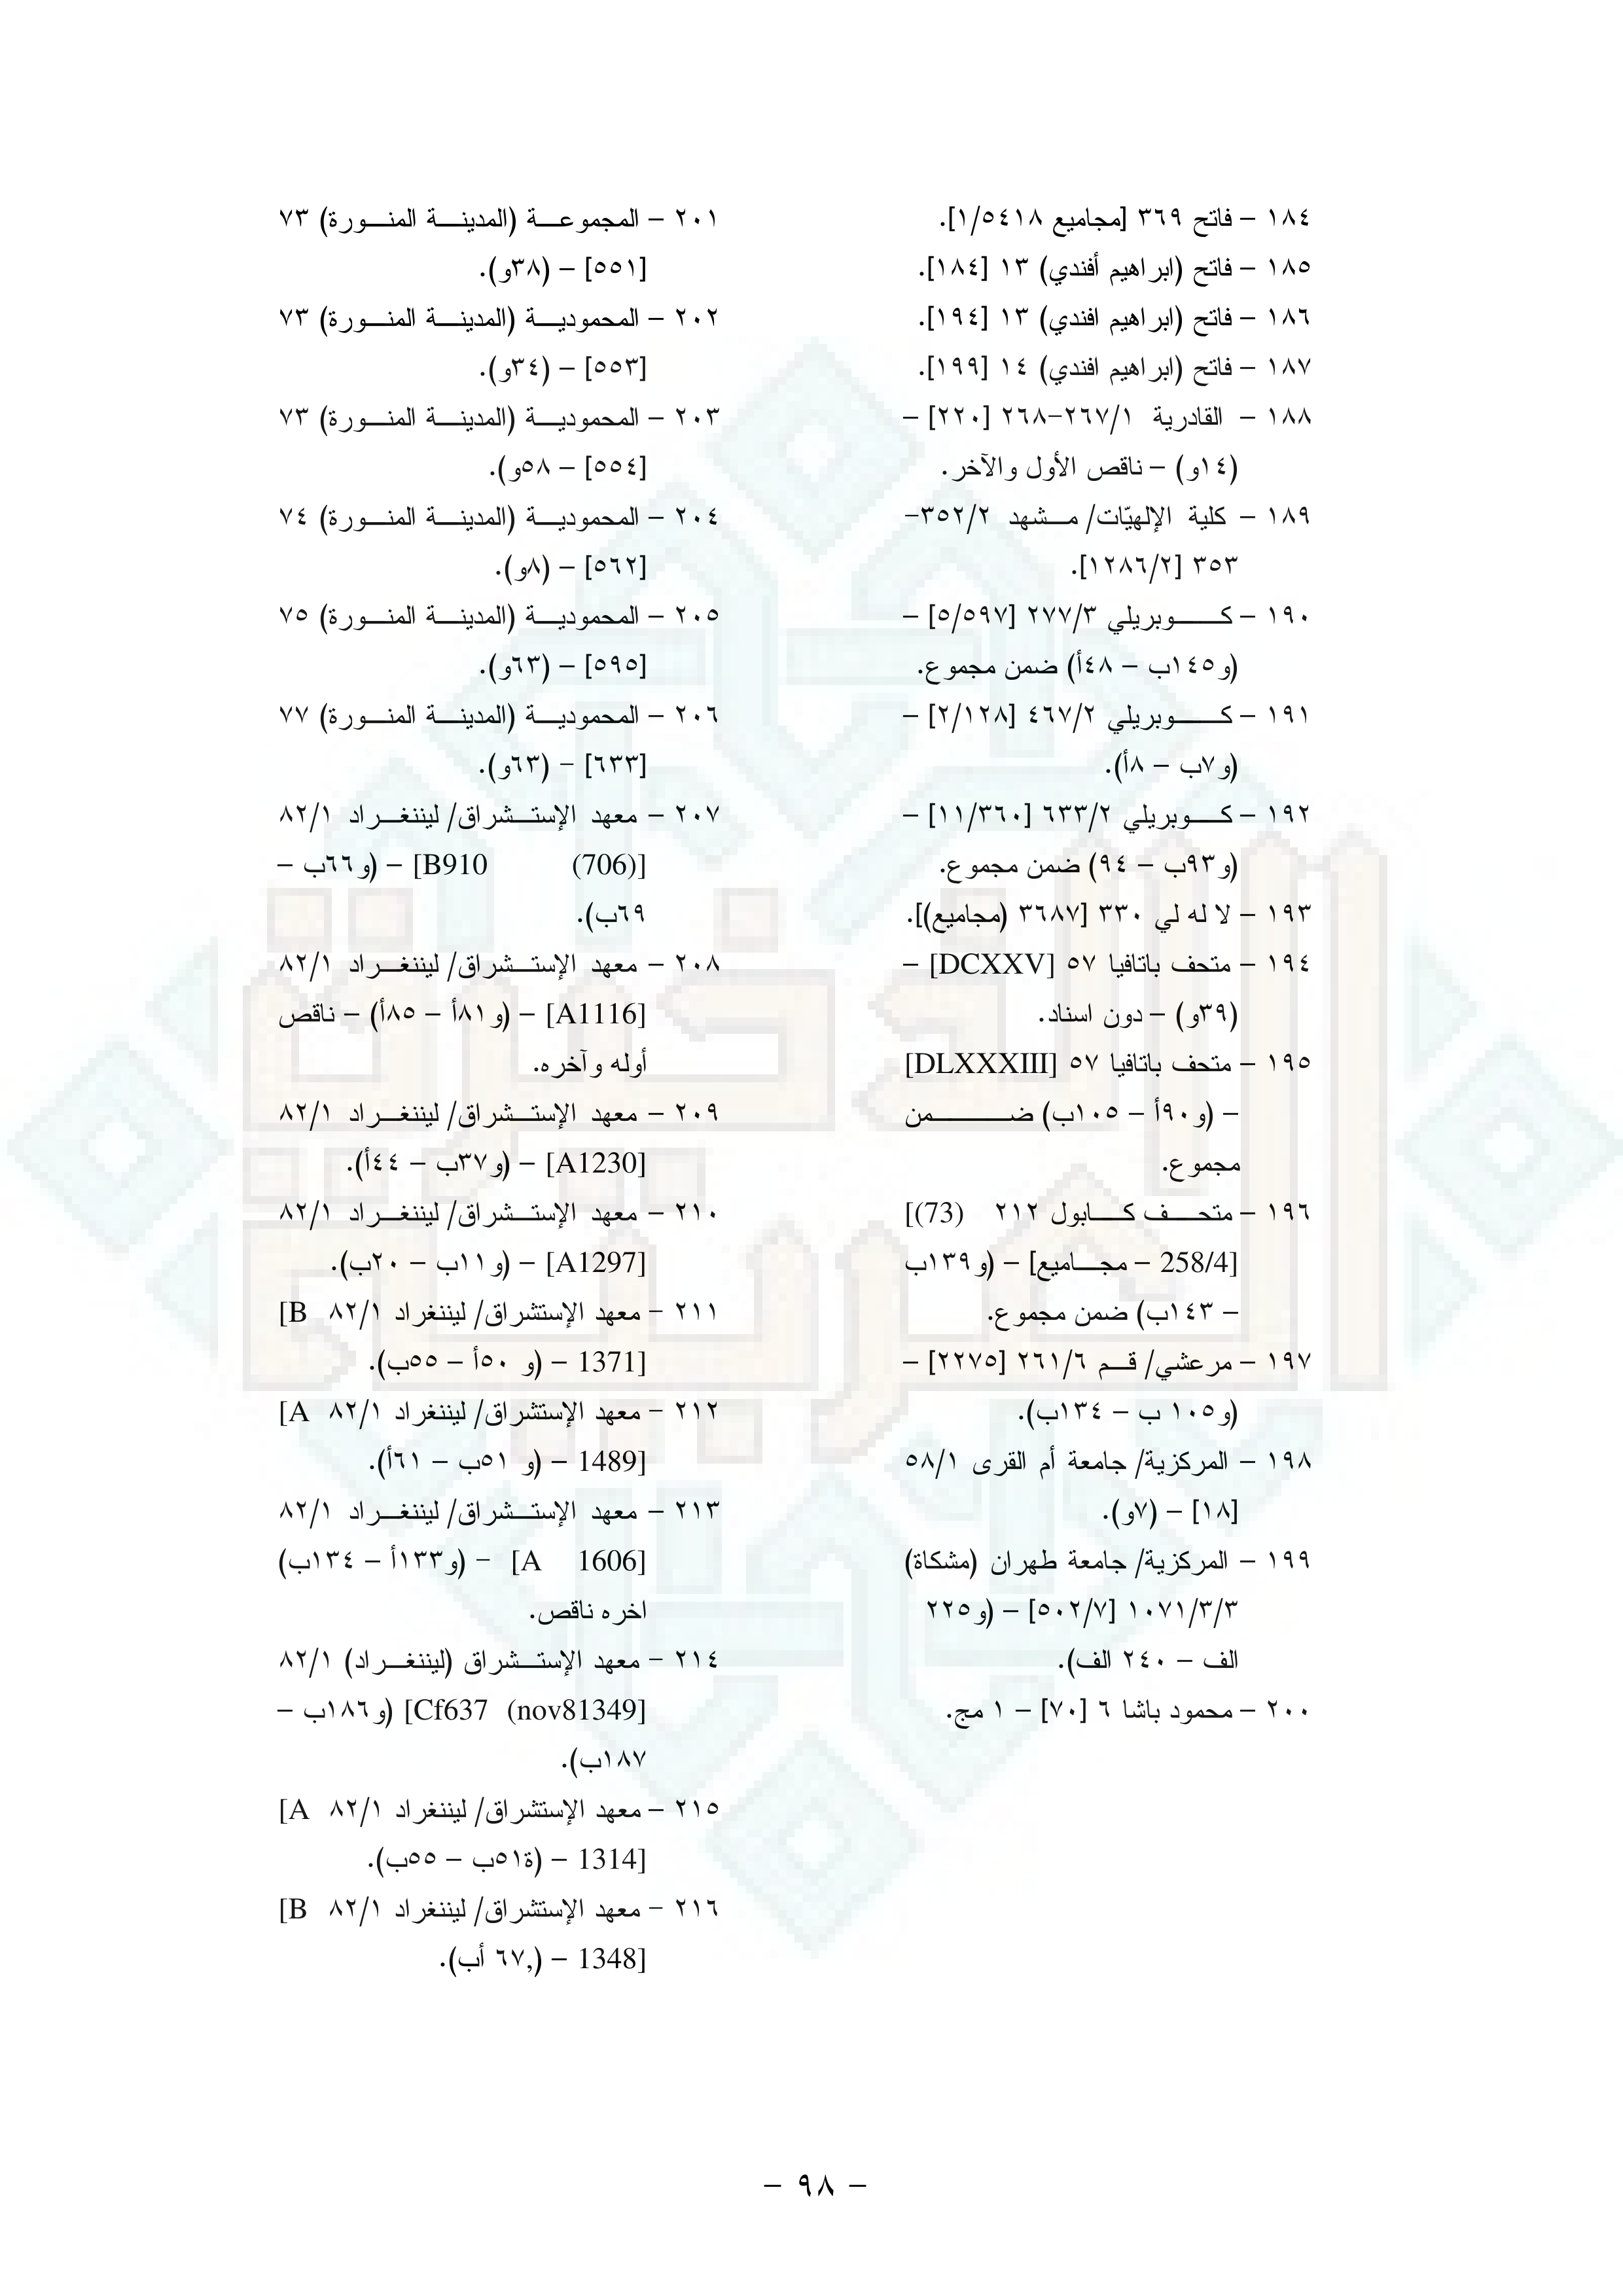 ١٨٤ – فاتح ٣٦٩ [مجاميع ١/٥٤١٨].
١٨٥ – فاتح (ابراهيم أفندي) ١٣ [١٨٤].
١٨٦ – فاتح (ابراهيم افندي) ١٣ [١٩٤].
١٨٧ – فاتح (ابراهيم افندي) ١٤ [١٩٩].
١٨٨ – القادرية ٢٦٧/١-٢٦٨ [٢٢٠] –
(١٤و) – ناقص الأول والآخر.
١٨٩ – كلية الإلهيّات/ مشهد ٣٥٢/٢-
٣٥٣ [١٢٨٦/٢].
١٩٠ – كوبريلي ٢٧٧/٣ [٥/٥٩٧] –
(و١٤٥ب – ٤٨أ) ضمن مجموع.
١٩١ – كوبريلي ٤٦٧/٢ [٢/١٢٨] –
(و٧ب – ٨أ).
١٩٢ – كوبريلي ٦٣٣/٢ [١١/٣٦٠] –
(و٩٣ب – ٩٤) ضمن مجموع.
١٩٣ – لا له لي ٣٣٠ [٣٦٨٧ (مجاميع)].
١٩٤ – متحف باتافيا ٥٧ [DCXXV] –
(٣٩و) – دون اسناد.
١٩٥ – متحف باتافيا ٥٧ [DLXXXIII]
– (و٩٠أ – ١٠٥ب) ضمن
مجموع.
١٩٦ – متحف كابول ٢١٢ (73)]
[258/4 – مجاميع] – (و١٣٩ب
– ١٤٣ب) ضمن مجموع.
١٩٧ – مرعشي/ قم ٢٦١/٦ [٢٢٧٥] –
(و١٠٥ ب – ١٣٤ب).
١٩٨ – المركزية/ جامعة أم القرى ٥٨/١
[١٨] – (٧و).
١٩٩ – المركزية/ جامعة طهران (مشكاة)
١٠٧١/٣/٣ [٥٠٢/٧] – (و٢٢٥
الف – ٢٤٠ الف).
٢٠٠ – محمود باشا ٦ [٧٠] – ١ مج.
٢٠١ – المجموعة (المدينة المنورة) ٧٣
[٥٥١] – (٣٨و).
٢٠٢ – المحمودية (المدينة المنورة) ٧٣
[٥٥٣] – (٣٤و).
٢٠٣ – المحمودية (المدينة المنورة) ٧٣
[٥٥٤] – ٥٨و).
٢٠٤ – المحمودية (المدينة المنورة) ٧٤
[٥٦٢] – (٨و).
٢٠٥ – المحمودية (المدينة المنورة) ٧٥
[٥٩٥] – (٦٣و).
٢٠٦ – المحمودية (المدينة المنورة) ٧٧
[٦٣٣] – (٦٣و).
٢٠٧ – معهد الإستشراق/ ليننغراد ٨٢/١
[B910 (706)] – (و٦٦ب –
٦٩ب).
٢٠٨ – معهد الإستشراق/ ليننغراد ٨٢/١
[A1116] – (و٨١أ – ٨٥أ) – ناقص
أوله وآخره.
٢٠٩ – معهد الإستشراق/ ليننغراد ٨٢/١
[A1230] – (و٣٧ب – ٤٤أ).
٢١٠ – معهد الإستشراق/ ليننغراد ٨٢/١
[A1297] – (و١١ب – ٢٠ب).
٢١١ – معهد الإستشراق/ ليننغراد ٨٢/١ B]
[1371 – (و ٥٠أ – ٥٥ب).
٢١٢ – معهد الإستشراق/ ليننغراد ٨٢/١ A]
[1489 – (و ٥١ب – ٦١أ).
٢١٣ – معهد الإستشراق/ ليننغراد ٨٢/١
[A 1606] – (و١٣٣أ – ١٣٤ب)
اخره ناقص.
٢١٤ – معهد الإستشراق (ليننغراد) ٨٢/١
[Cf637 (nov81349] (و١٨٦ب –
١٨٧ب).
٢١٥ – معهد الإستشراق/ ليننغراد ٨٢/١ A]
[1314 – (ة٥١ب – ٥٥ب).
٢١٦ – معهد الإستشراق/ ليننغراد ٨٢/١ B]
[1348 – (,٦٧ أب).
– ٩٨ –